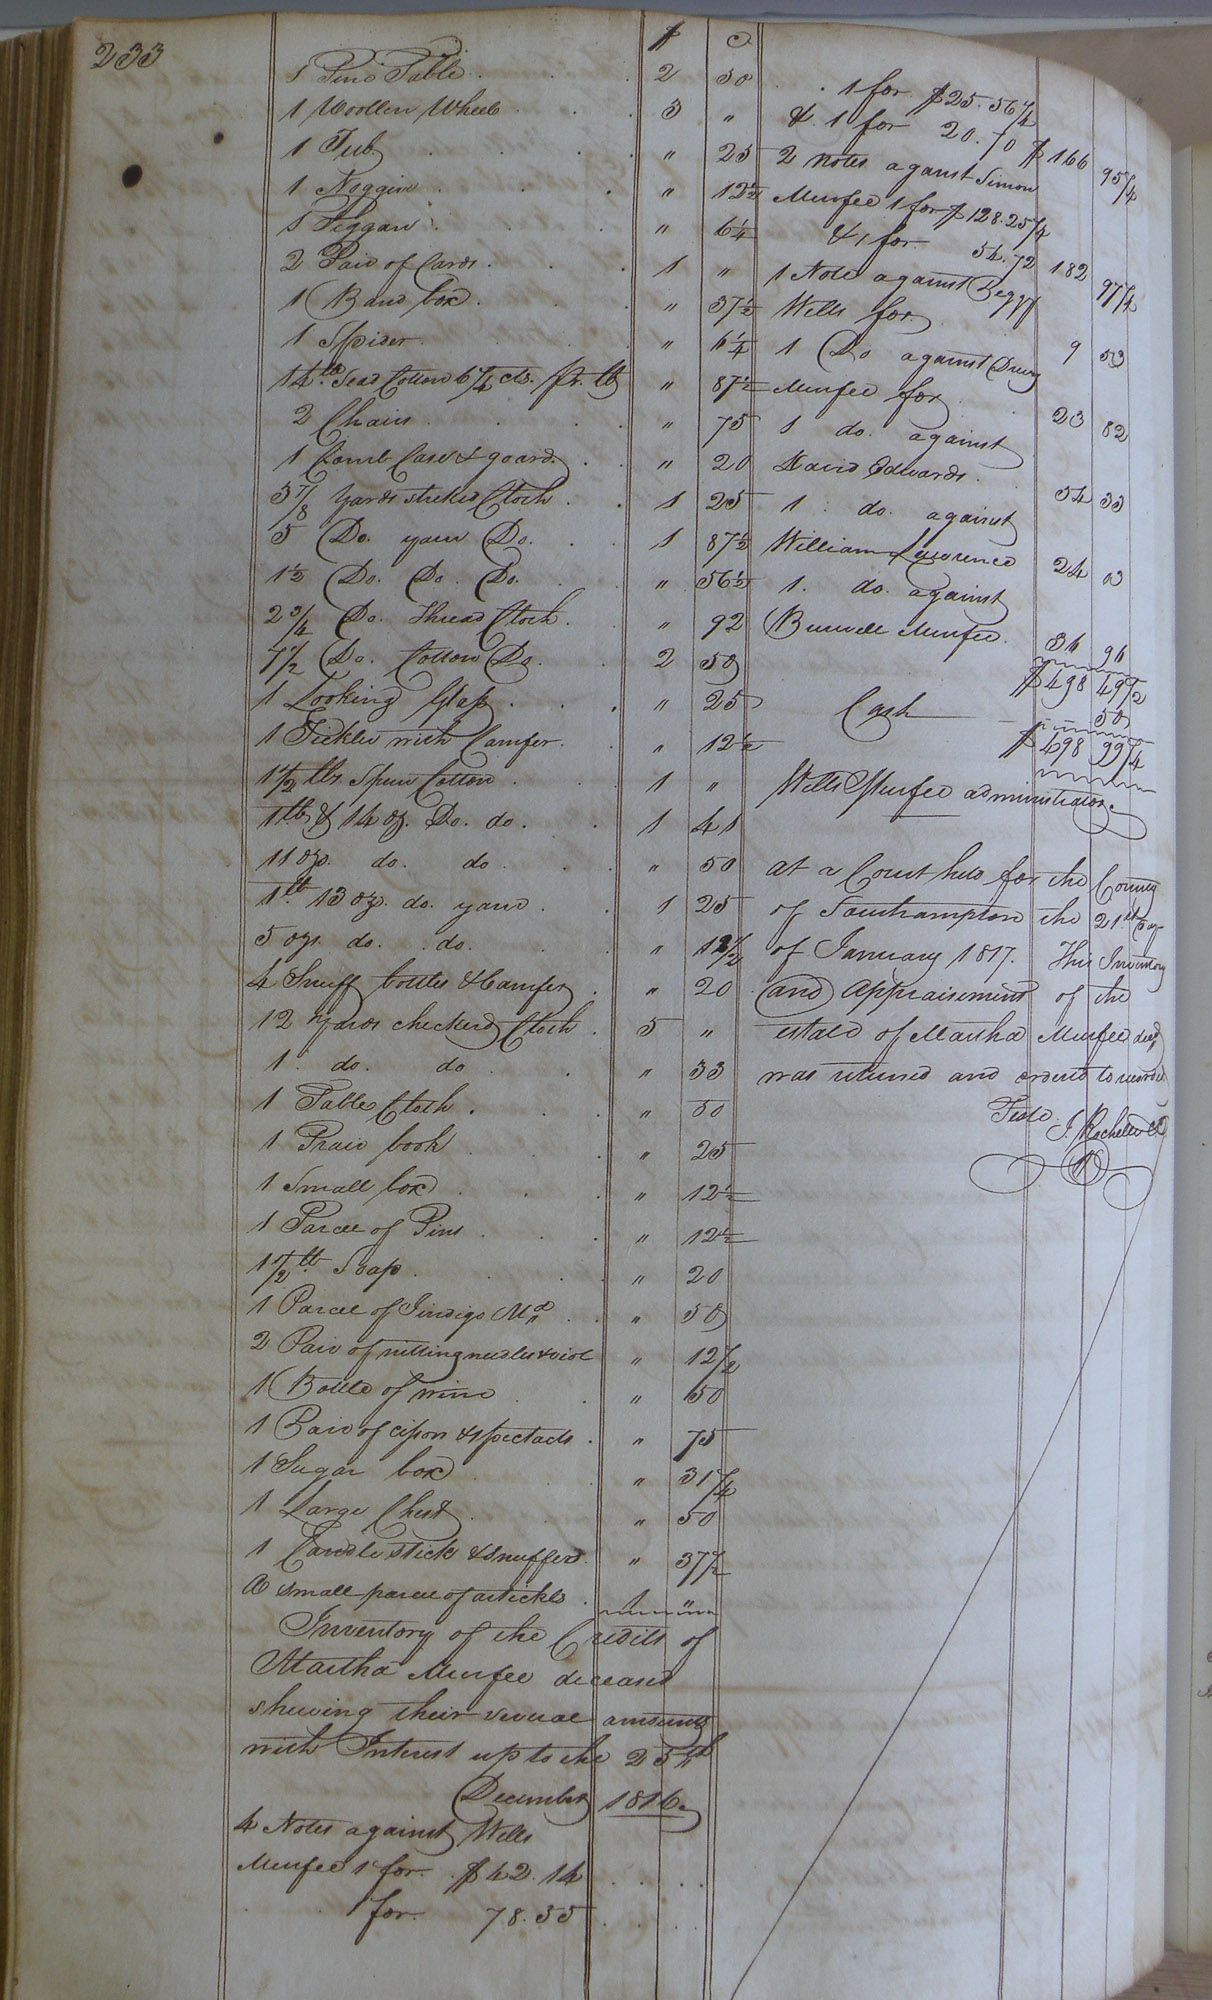 233
$ c
1 Pine Table 2 50
1 Woollen Wheel 3 "
1 Tub " 25
1 Noggin " 12½
1 Piggan " 6¼
2 Pair of Cards 1 "
1 Band box " 37½
1 Spider " 6¼
14 lb Sead Cotton 6¼ cts. pr. lb " 87½
2 Chairs " 75
1 Comb Case & goard " 20
3⅞ Yards striked Cloth 1 25
5 Do. yarn Do. 1 87½
1½ Do. Do. Do. " 56½
2¾ Do. Thread Cloth " 92
7½ Do. Cotton Do. 2 50
1 Looking Glass " 25
1 Tickler with Camfer " 12½
1½ lbs Spun Cotton 1 "
1 lb & 14 oz. Do. do. 1 41
11 oz. do. do " 50
1 lb. 13 oz. do. yarn 1 25
5 ozs. do. do. " 12½
4 Snuff bottles & Camfer " 20
12 Yards checkerd Cloth 5 "
1 do. do " 33
1 Table Cloth " 50
1 Prair book " 25
1 Small box " 12½
1 Parcel of Pins " 12½
1½ lb. Soap " 20
1 Parcel of Indigo Md " 50
2 Pair of nitting needles & viol " 12½
1 Bottle of wine " 50
1 Pair of cissors & spectacls " 75
1 Sugar box " 31¼
1 Large Chest " 50
1 Candle stick & snuffers " 37½
A small parcel of artickls 1 "
Inventory of the Credits of
Martha Murfee deceased
shewing their several amounts
with Interest up to the 25th
December 1816.
4 Notes against Wells
Murfee 1 for $42.14
1 for 78.55
1 for $25.56¼
& 1 for 20.70 $166 95¼
2 Notes against Simon
Murfee 1 for $128.25¼
& 1 for 54.72 182 97¼
1 Note against Beggy
Wells for 9 53
1 Do against Drury
Murfee for 23 82
1 do. against
David Edwards 54 33
1 do. against
William Lawrence 24 03
1. do. against
Burwell Murfee 36 96
$498 49½
Cash 50
$498 99¼
Wells Murfee administrator.
At a Court held for the County
of Southampton the 21st Day
of January 1817. This Inventory
and Appraisement of the
estate of Martha Murfee decd
was returned and ordered to recorded
Teste J. Rochelle C